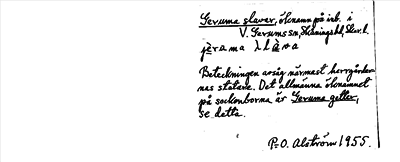 Geruma slavar, öknamn på inb. i
V. Gerums sn, Skånings hd, Skar. l.
jèrama slàva
Beteckningen avsåg närmast herrgårdar-
nas statare. Det allmänna öknamnet
på sockenborna är Geruma getter,
se detta.
P. O. Alström 1955.